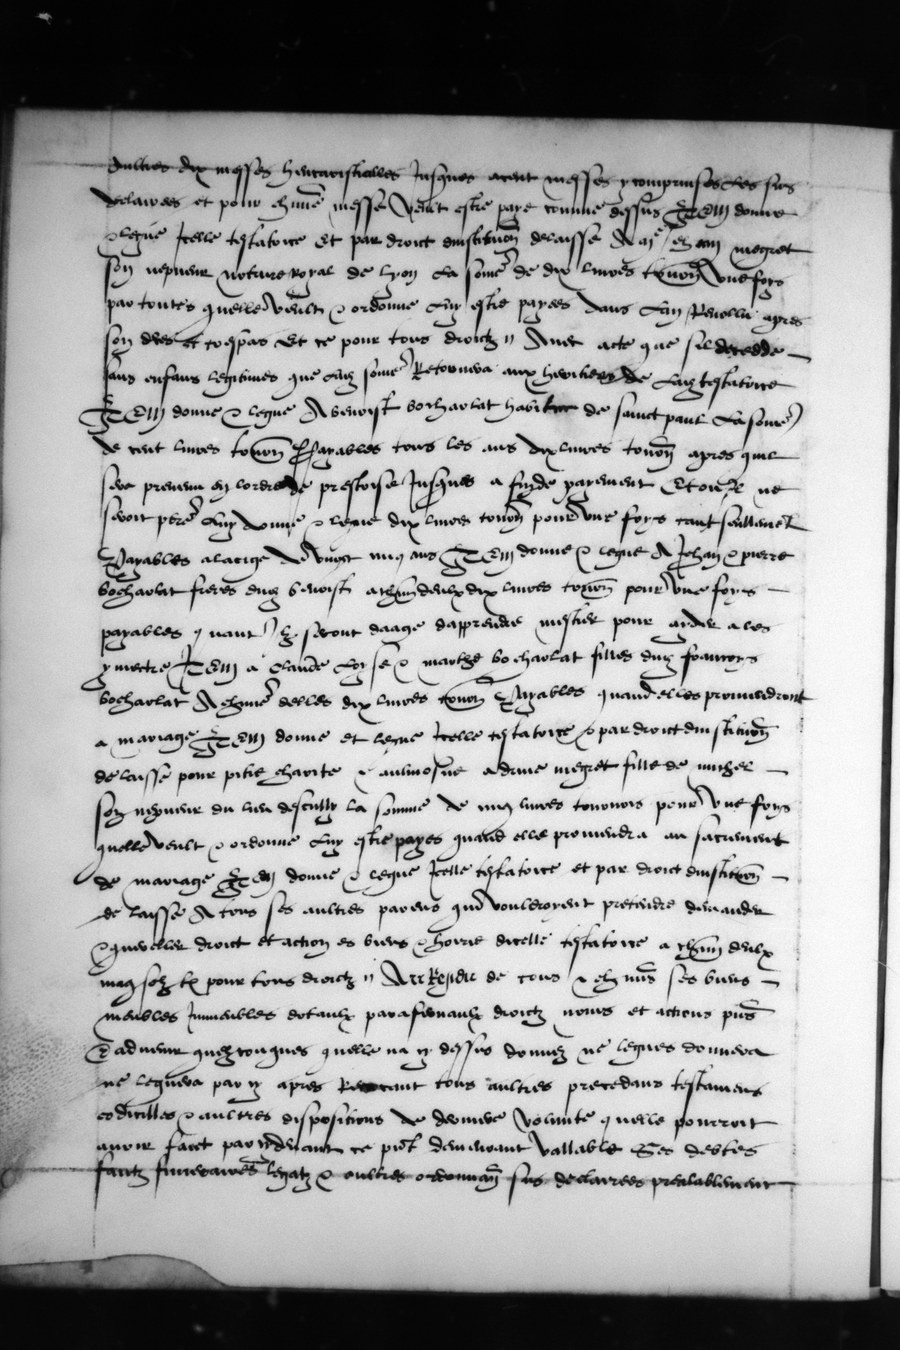 aultres dix messes jusques a cent messes y comprinses les sus
declairees et pour chune messe veult estre paye comme dessus ITEM donne
& legue icelle testatrice Et par droict dinstitution delaisse A me Jehan megret
son nepveur notaire royal de lyon la some de dix livres tourn une foys
par toutes quelle veult & ordonne luy estre payees dans lan revollu apres
son deces et trespas Et ce pour tous droictz Avec acte que sil decedde
sans enfans legitimes que lad some Retournera aux heritiers de lad testatrice
ITEM donne & legue A benoist bochaolat de sainct paul La some
de cent livres tourn payables tous les ans dix livres tourn apres quil
sera en lordre de prestrise Jusques a fin de payement Et ou il ne
seroit luy donne & legue dix livres tourn pour une foys tant seullement
Payables a laaige de vingt cinq ans ITEM donne & legue A Jehan & pierre
bochaolat freres dud benoist a chun deulx dix livres tourn pour une foys
payables quant ilz seront daage dapprendre mestier pour ayder a les
y mectre ITEM a Claude & marthe bochaolat filles dud francoys
bochaolat A chune delles dix livres tourn Payables quand elles proviendront
a mariage ITEM donne et legue icelle testatrice & par droict dinstitution
delaisse pour pitie charite & aulmosne a megret fille de michel
son nepveur du lieu descully la somme de cinq livres tournois pour une foys
quelle veult & ordonne luy estre payes quand elle proviendra au sacrement
de mariage ITEM donne & legue icelle testatrice et par droict dinstitution
delaisse A tous ses aultres parens qui vouldroyent pretendre demander
& quereller droict et action es biens & hoirie dicelle testatrice a chun deulx
cinq solz tz pour tous droictz Au Residu de tous & chuns ses biens
meubles immeubles dotaulx parafernaulx droictz noms et actions pns
& advenir quelzconques quelle na cy dessus donnez ne legues donnera
ne leguera par cy apres Revocant tous aultres precedans testamens
codicilles & aultres dispositions de derniere volunte quelle pourroit
avoir faict par cy devant ce pnt demeurant vallable Ses debtes
faictz funeraires legatz & aultres ordonnan sus declairees prealablement